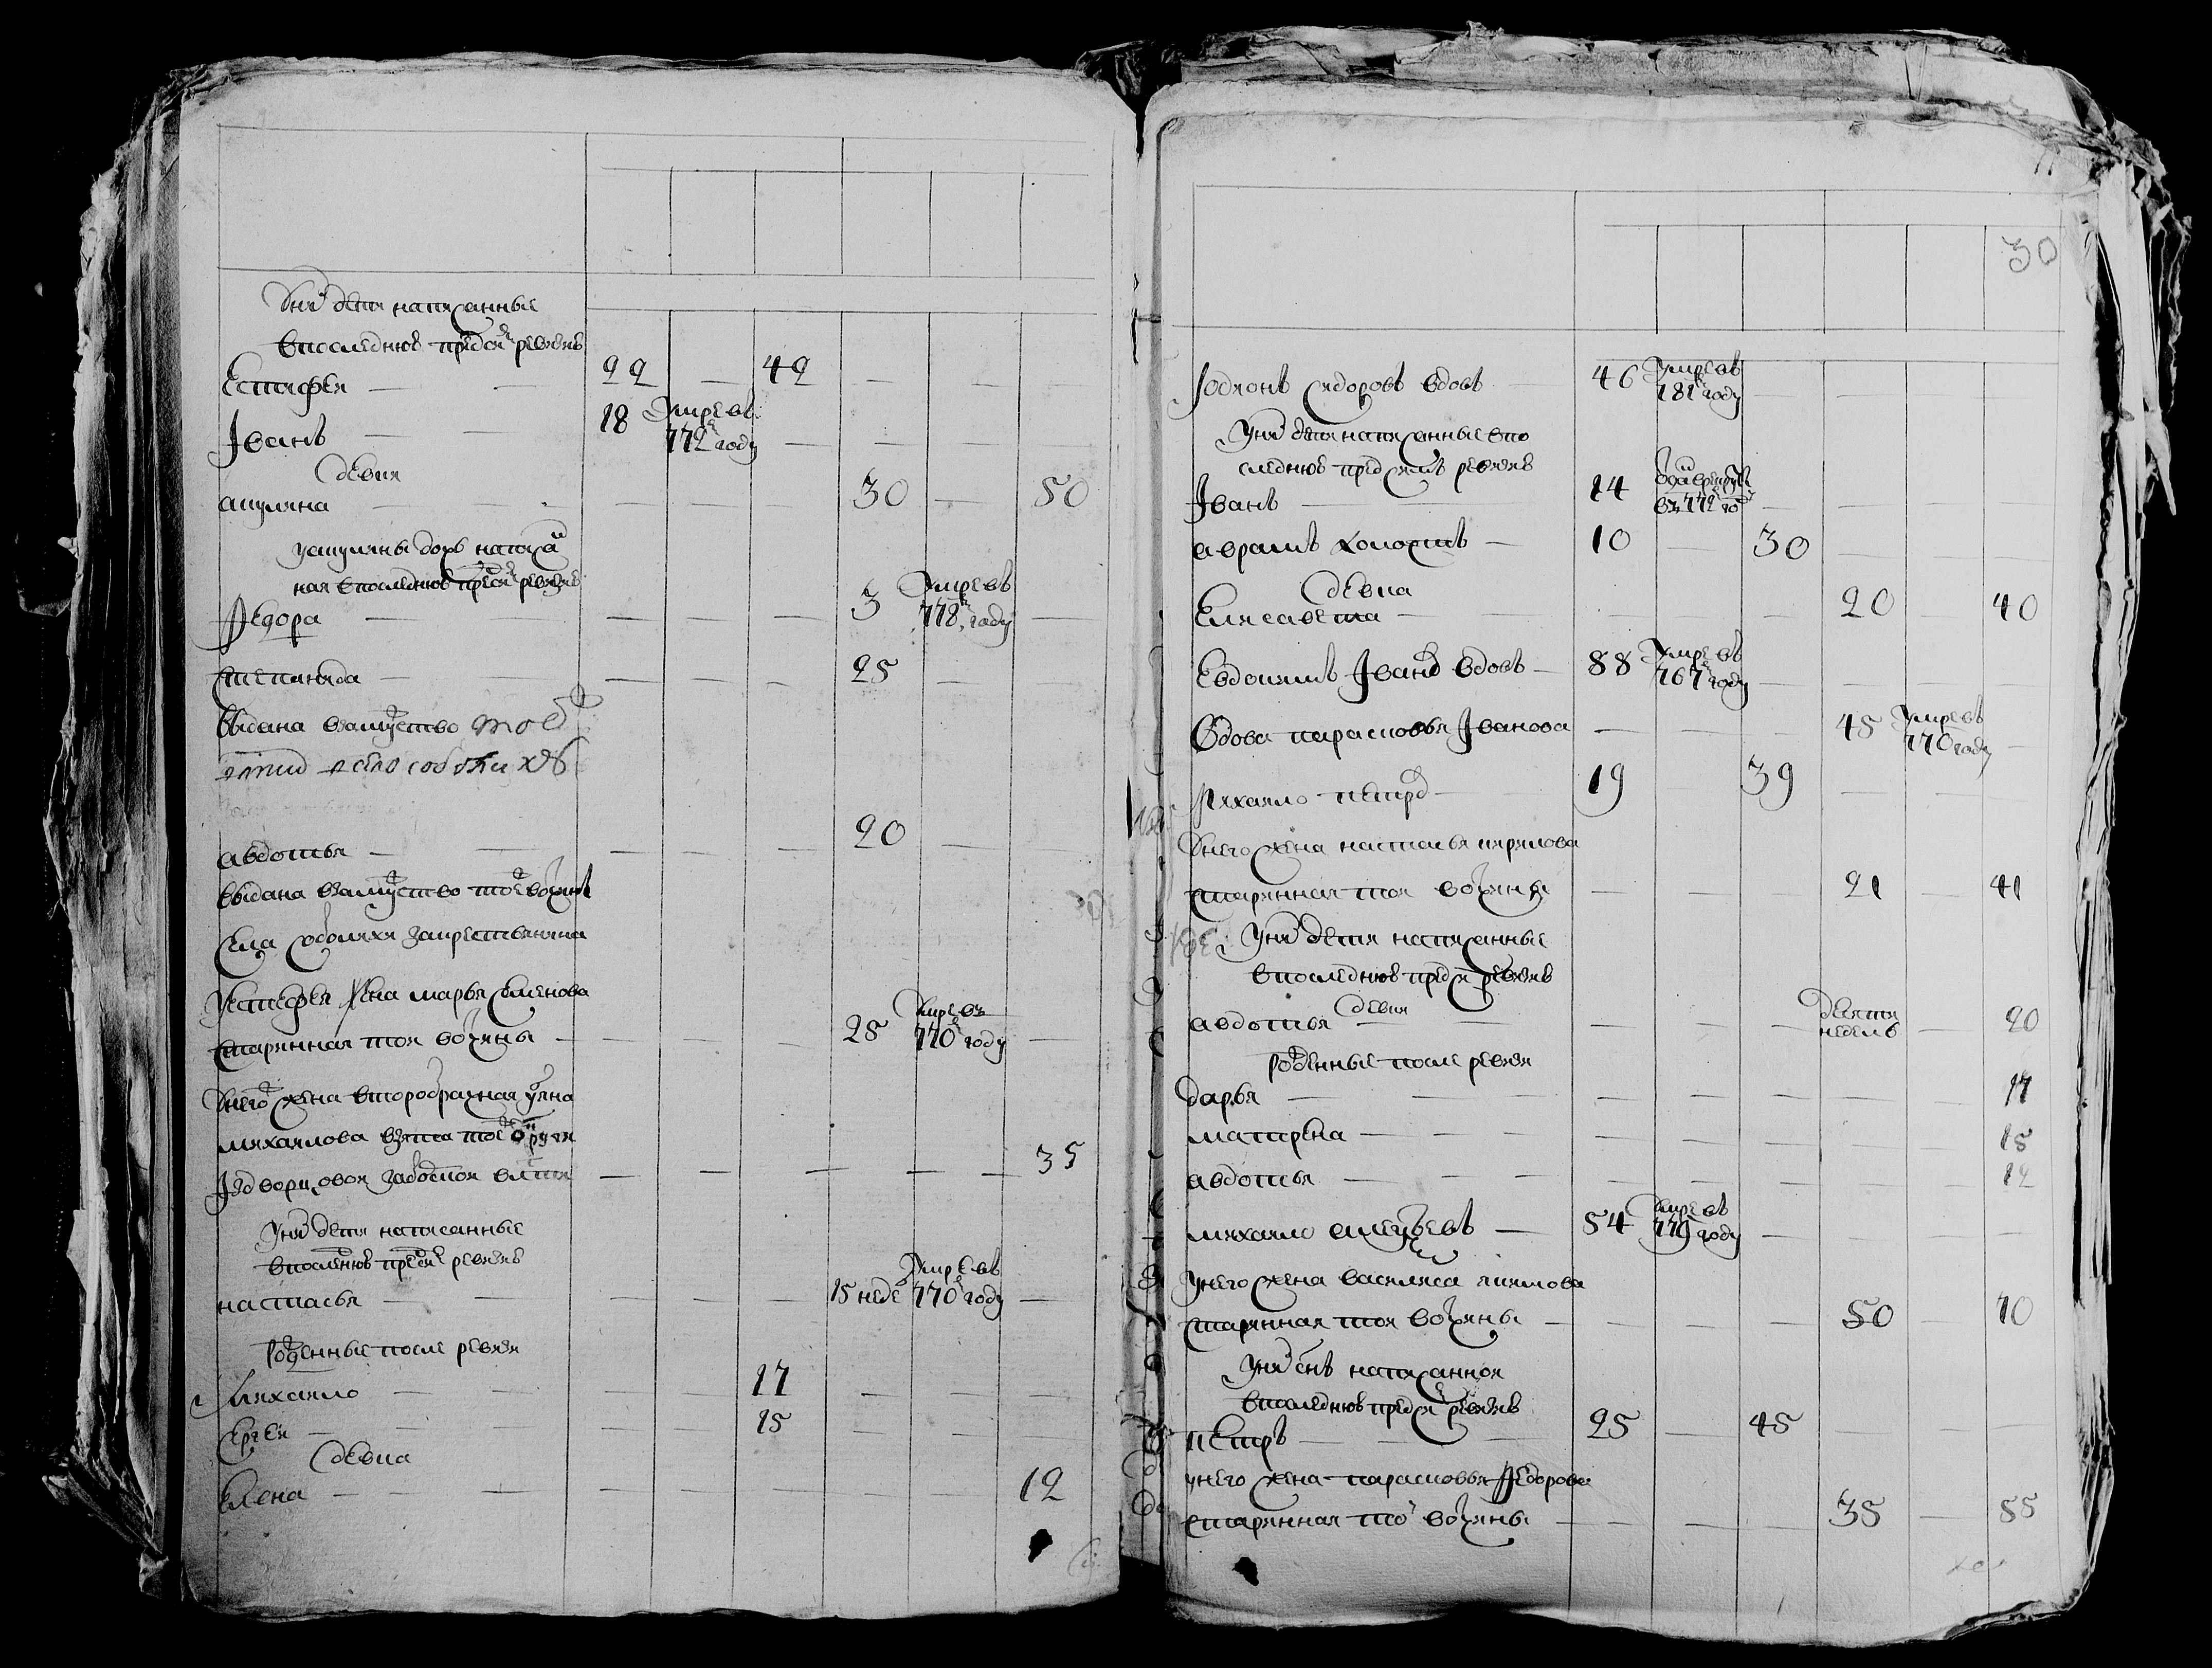 У них дети написанные
в последнюю пред сей ревизию
Естифей — — 22 — 42 — — —
Иванъ — — 18 умре въ 772м году — — — —
девки
акулина — — — — — 30 — 50
у акулины дочь написан
ная в последнюю пред сей ревизию
Федора — — — — 3 умре въ 778м году —
степанида — — — — 25 —
выдана в замужство
авдотья — — — — — 20 — —
выдана в замужство той вотчины
села за крестьянина
у естифея жена марья семенова
старинная той вотчины — — — — 25 умре въ 770м году —
У него жена второбрачная
михаилова взята той округи
Из дворцовой волости — — — — — 35
У них дети написанные
в последнюю пред сей ревизию
настасья — — — — — 15 неде умре въ 770м году —
Рожденные после ревизии
Михаило — — — — 17 — — —
Сергей — — — 15 — — —
девка
Елена — — — — — — — — 12
30
Родионъ сидоровъ вдовъ — 46 умре въ 781м году — — — —
У них дети написанные в по
следнюю пред симъ ревизию
Иванъ — 14 отдан в рекруты въ 772м го — — — —
аврамъ холостъ — 10 — 30 — — —
девка
Елисавета — — — — — 20 — 40
Евдокимъ Ивановъ вдовъ — 88 умре въ 767м году — — — —
Вдова парасковья Иванова — — — 45 умре въ 770 году —
Михаило петров — 19 — 39 — — —
У него жена настасья кирилова
старинная той вотчины — — — 21 — 41
У них дети написанные
в последнюю пред сей ревизию
девки
авдотья — — — — — девяти недель — 20
Рожденные после ревизии
дарья — — — — — — — 17
матрена — — — — — — — 15
авдотья — — — — — — — 12
михаило — 54 умре въ 779м году — — — —
У него жена василиса
старинная той вотчины — — — — 50 — 70
У них сынъ написанной
в последнюю пред сей ревизию
петръ — — — 25 — 45 — — —
у него жена парасковья Федорова
старинная той вотчины — — — — 35 — 55